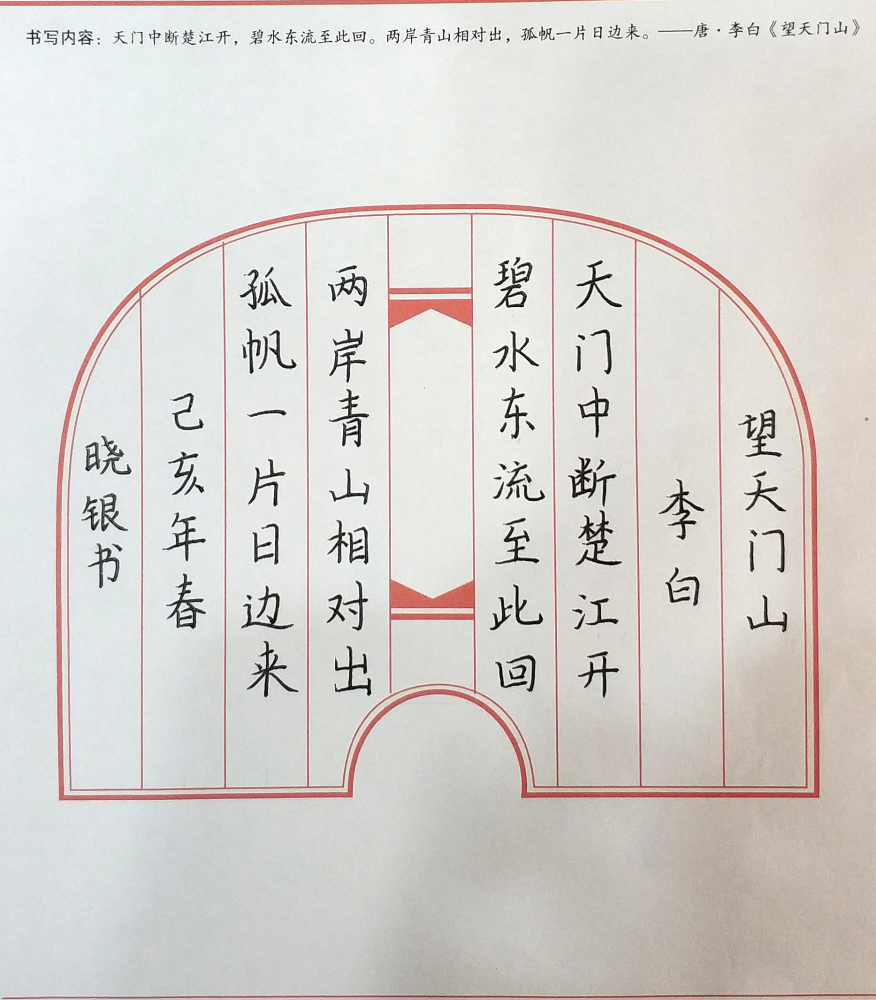 书写内容：天门中断楚江开，碧水东流至此回。两岸青山相对出，孤帆一片日边来。——唐·李白《望天门山》
望天门山
李白
天门中断楚江开
碧水东流至此回
两岸青山相对出
孤帆一片日边来
己亥年春
晓银书